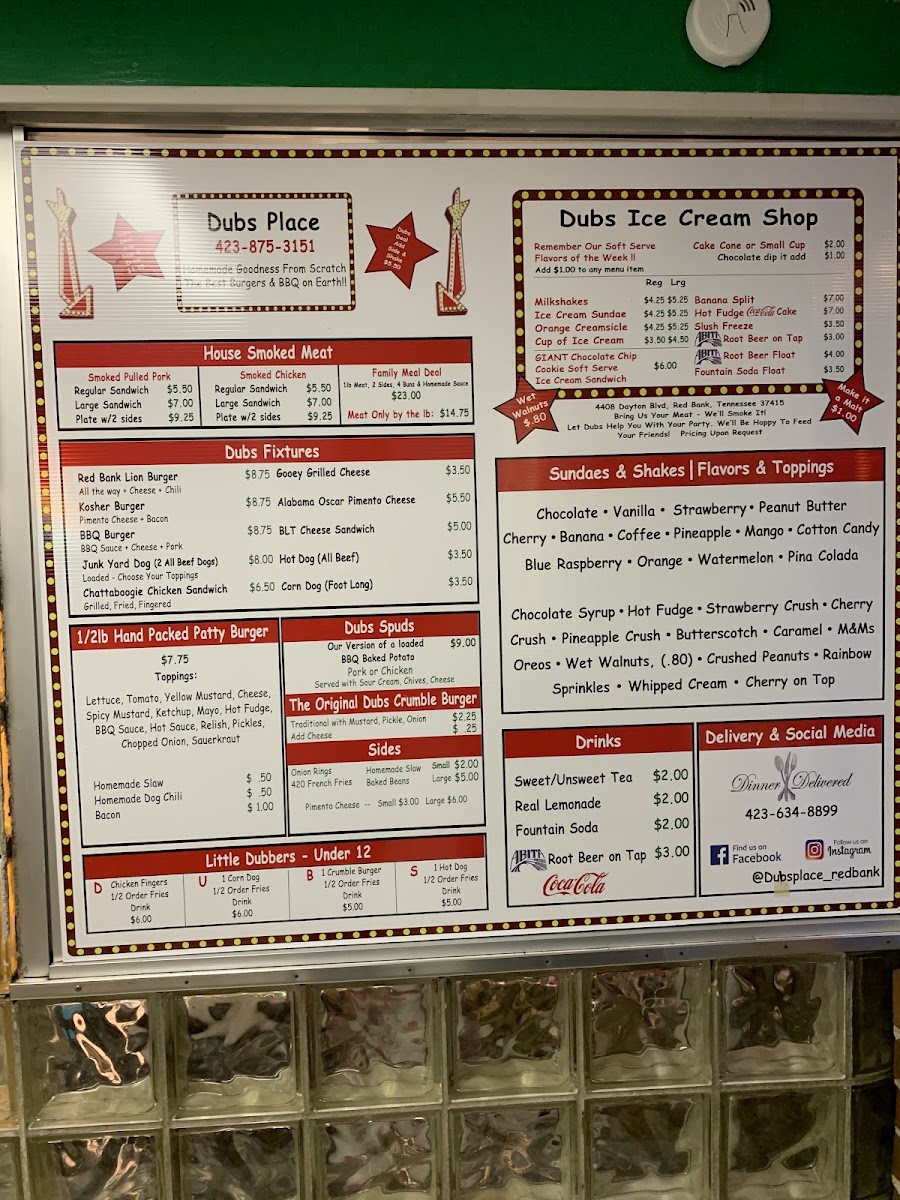 Dubs Place
423-875-3151
Homemade Goodness From Scratch
The Best Burgers & BBQ on Earth!!
Dubs
Deal
Add
Side &
Shake
$5.50
House Smoked Meat
Smoked Pulled Pork
Regular Sandwich $5.50
Large Sandwich $7.00
Plate w/2 sides $9.25
Smoked Chicken
Regular Sandwich $5.50
Large Sandwich $7.00
Plate w/2 sides $9.25
Family Meal Deal
1lb Meat, 2 Sides, 4 Buns & Homemade Sauce
$23.00
Meat Only by the lb: $14.75
Dubs Fixtures
Red Bank Lion Burger $8.75
All the way + Cheese + Chili
Kosher Burger $8.75
Pimento Cheese + Bacon
BBQ Burger $8.75
BBQ Sauce + Cheese + Pork
Junk Yard Dog (2 All Beef Dogs) $8.00
Loaded - Choose Your Toppings
Chattaboogie Chicken Sandwich $6.50
Grilled, Fried, Fingered
Gooey Grilled Cheese $3.50
Alabama Oscar Pimento Cheese $5.50
BLT Cheese Sandwich $5.00
Hot Dog (All Beef) $3.50
Corn Dog (Foot Long) $3.50
1/2lb Hand Packed Patty Burger
$7.75
Toppings:
Lettuce, Tomato, Yellow Mustard, Cheese,
Spicy Mustard, Ketchup, Mayo, Hot Fudge,
BBQ Sauce, Hot Sauce, Relish, Pickles,
Chopped Onion, Sauerkraut
Homemade Slaw $ .50
Homemade Dog Chili $ .50
Bacon $ 1.00
Dubs Spuds
Our Version of a loaded $9.00
BBQ Baked Potato
Pork or Chicken
Served with Sour Cream, Chives, Cheese
The Original Dubs Crumble Burger
Traditional with Mustard, Pickle, Onion $2.25
Add Cheese $ .25
Sides
Onion Rings Homemade Slaw Small $2.00
420 French Fries Baked Beans Large $5.00
Pimento Cheese -- Small $3.00 Large $6.00
Little Dubbers - Under 12
D
Chicken Fingers
1/2 Order Fries
Drink
$6.00
U
1 Corn Dog
1/2 Order Fries
Drink
$6.00
B
1 Crumble Burger
1/2 Order Fries
Drink
$5.00
S
1 Hot Dog
1/2 Order Fries
Drink
$5.00
Dubs Ice Cream Shop
Remember Our Soft Serve
Flavors of the Week !!
Add $1.00 to any menu item
Cake Cone or Small Cup $2.00
Chocolate dip it add $1.00
Reg Lrg
Milkshakes $4.25 $5.25
Ice Cream Sundae $4.25 $5.25
Orange Creamsicle $4.25 $5.25
Cup of Ice Cream $3.50 $4.50
GIANT Chocolate Chip
Cookie Soft Serve $6.00
Ice Cream Sandwich
Banana Split $7.00
Hot Fudge Coca-Cola Cake $7.00
Slush Freeze $3.50
ABITA Root Beer on Tap $3.00
ABITA Root Beer Float $4.00
Fountain Soda Float $3.50
Wet
Walnuts
$.80
Make it
a Malt
$1.00
4408 Dayton Blvd, Red Bank, Tennessee 37415
Bring Us Your Meat - We'll Smoke It!
Let Dubs Help You With Your Party. We'll Be Happy To Feed
Your Friends! Pricing Upon Request
Sundaes & Shakes | Flavors & Toppings
Chocolate • Vanilla • Strawberry • Peanut Butter
Cherry • Banana • Coffee • Pineapple • Mango • Cotton Candy
Blue Raspberry • Orange • Watermelon • Pina Colada
Chocolate Syrup • Hot Fudge • Strawberry Crush • Cherry
Crush • Pineapple Crush • Butterscotch • Caramel • M&Ms
Oreos • Wet Walnuts, (.80) • Crushed Peanuts • Rainbow
Sprinkles • Whipped Cream • Cherry on Top
Drinks
Sweet/Unsweet Tea $2.00
Real Lemonade $2.00
Fountain Soda $2.00
ABITA Root Beer on Tap $3.00
Coca-Cola
Delivery & Social Media
Dinner Delivered
423-634-8899
Find us on
Facebook
Follow us on
Instagram
@Dubsplace_redbank